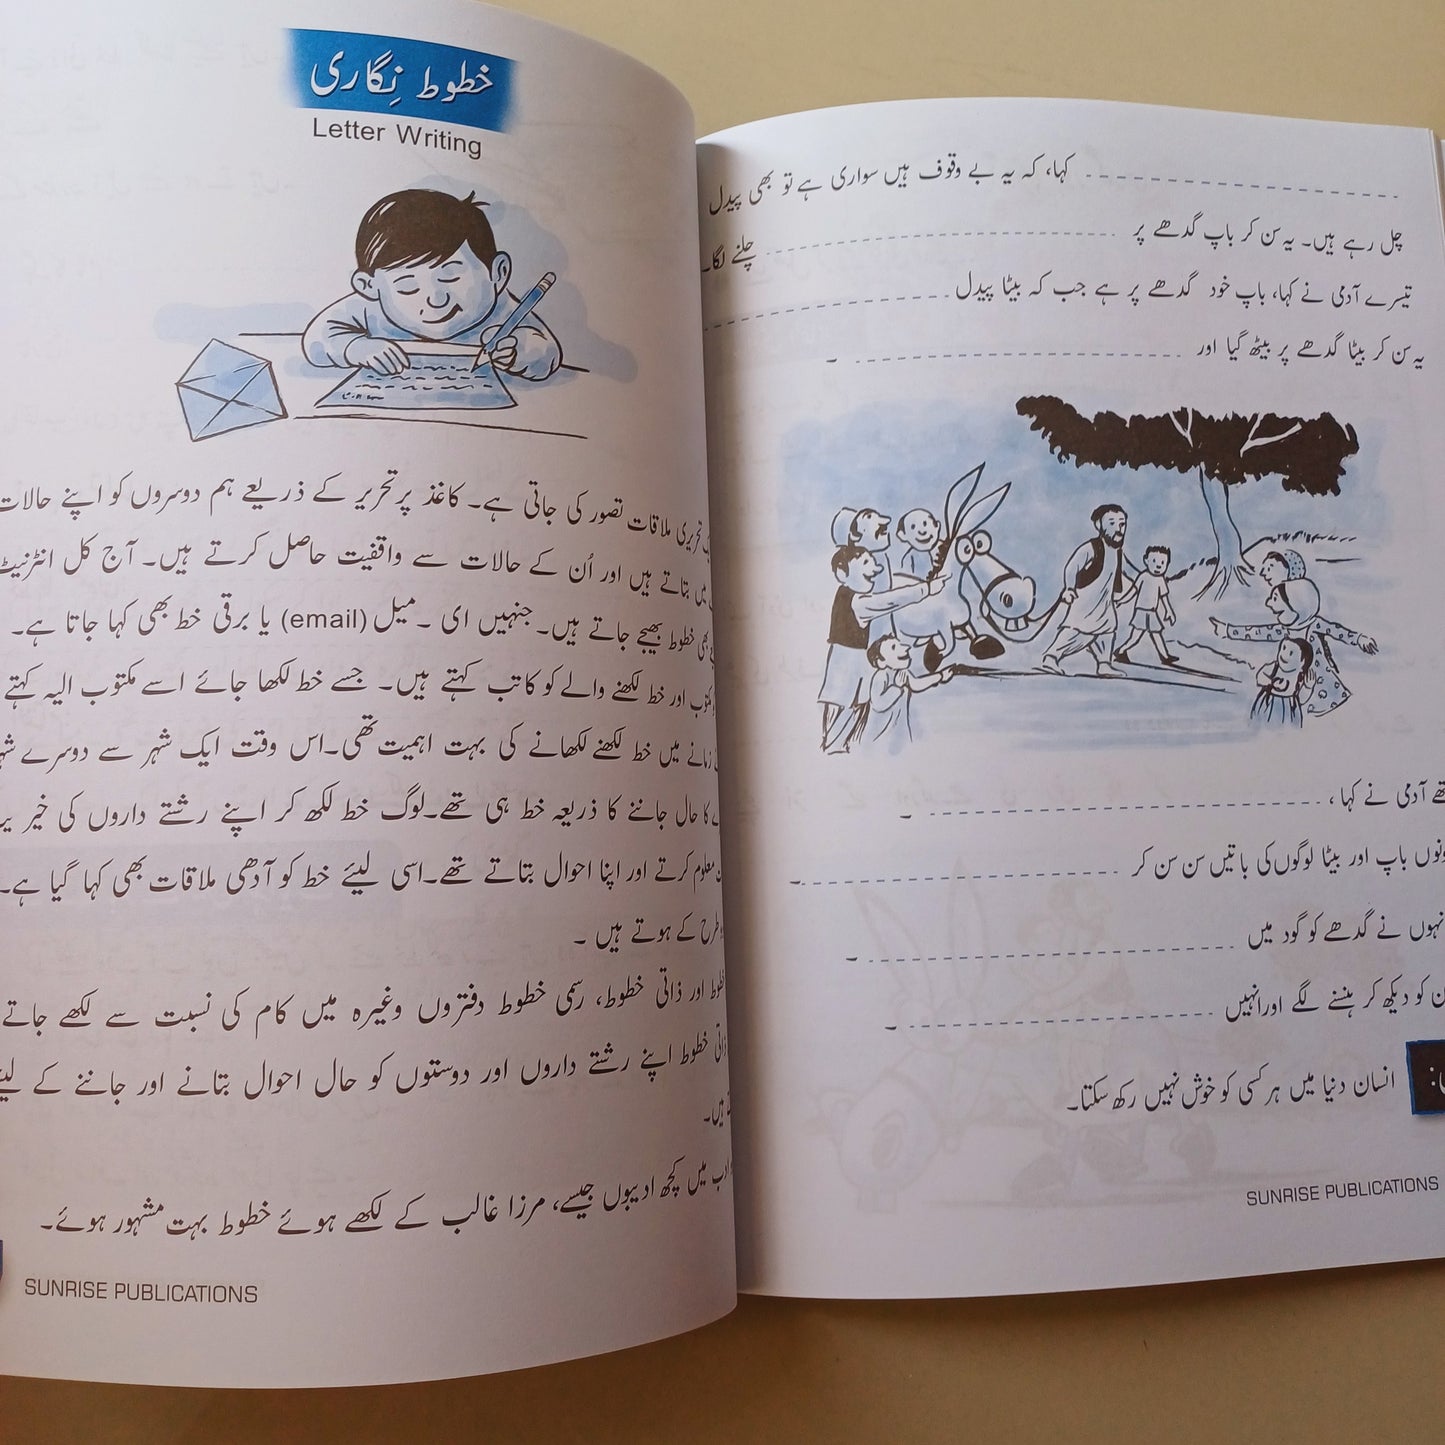 خطوط نِگاری
Letter Writing
تحریری ملاقات تصور کی جاتی ہے۔ کاغذ پر تحریر کے ذریعے ہم دوسروں کو اپنے حالات
میں بتاتے ہیں اور اُن کے حالات سے واقفیت حاصل کرتے ہیں۔ آج کل انٹرنیٹ
بھی خطوط بھیجے جاتے ہیں۔ جنہیں ای ۔ میل (email) یا برقی خط بھی کہا جاتا ہے۔
اور خط لکھنے والے کو کاتب کہتے ہیں۔ جسے خط لکھا جائے اسے مکتوب الیہ کہتے
زمانے میں خط لکھنے لکھانے کی بہت اہمیت تھی۔اس وقت ایک شہر سے دوسرے
کا حال جاننے کا ذریعہ خط ہی تھے۔لوگ خط لکھ کر اپنے رشتے داروں کی خیر
معلوم کرتے اور اپنا احوال بتاتے تھے۔اسی لیئے خط کو آدھی ملاقات بھی کہا گیا ہے۔
طرح کے ہوتے ہیں ۔
اور ذاتی خطوط، رسمی خطوط دفتروں وغیرہ میں کام کی نسبت سے لکھے جاتے
ذاتی خطوط اپنے رشتے داروں اور دوستوں کو حال احوال بتانے اور جاننے کے
ہیں۔
ادب میں کچھ ادیبوں جیسے، مرزا غالب کے لکھے ہوئے خطوط بہت مشہور ہوئے۔
SUNRISE PUBLICATIONS
کہا، کہ یہ بے وقوف ہیں سواری ہے تو بھی پیدل
چل رہے ہیں۔ یہ سن کر باپ گدھے پر چلنے لگا۔
تیسرے آدمی نے کہا، باپ خود گدھے پر ہے جب کہ بیٹا پیدل
یہ سن کر بیٹا گدھے پر بیٹھ گیا اور ۔
آدمی نے کہا ، ۔
باپ اور بیٹا لوگوں کی باتیں سن سن کر ۔
نے گدھے کو گود میں ۔
کو دیکھ کر ہنسنے لگے اور انہیں ۔
انسان دنیا میں ہر کسی کو خوش نہیں رکھ سکتا۔
SUNRISE PUBLICATIONS